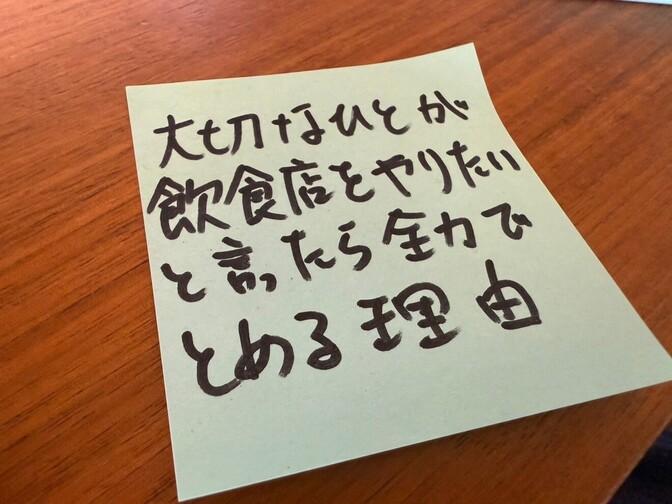 大切なひとが
飲食店をやりたい
と言ったら全力で
とめる理由